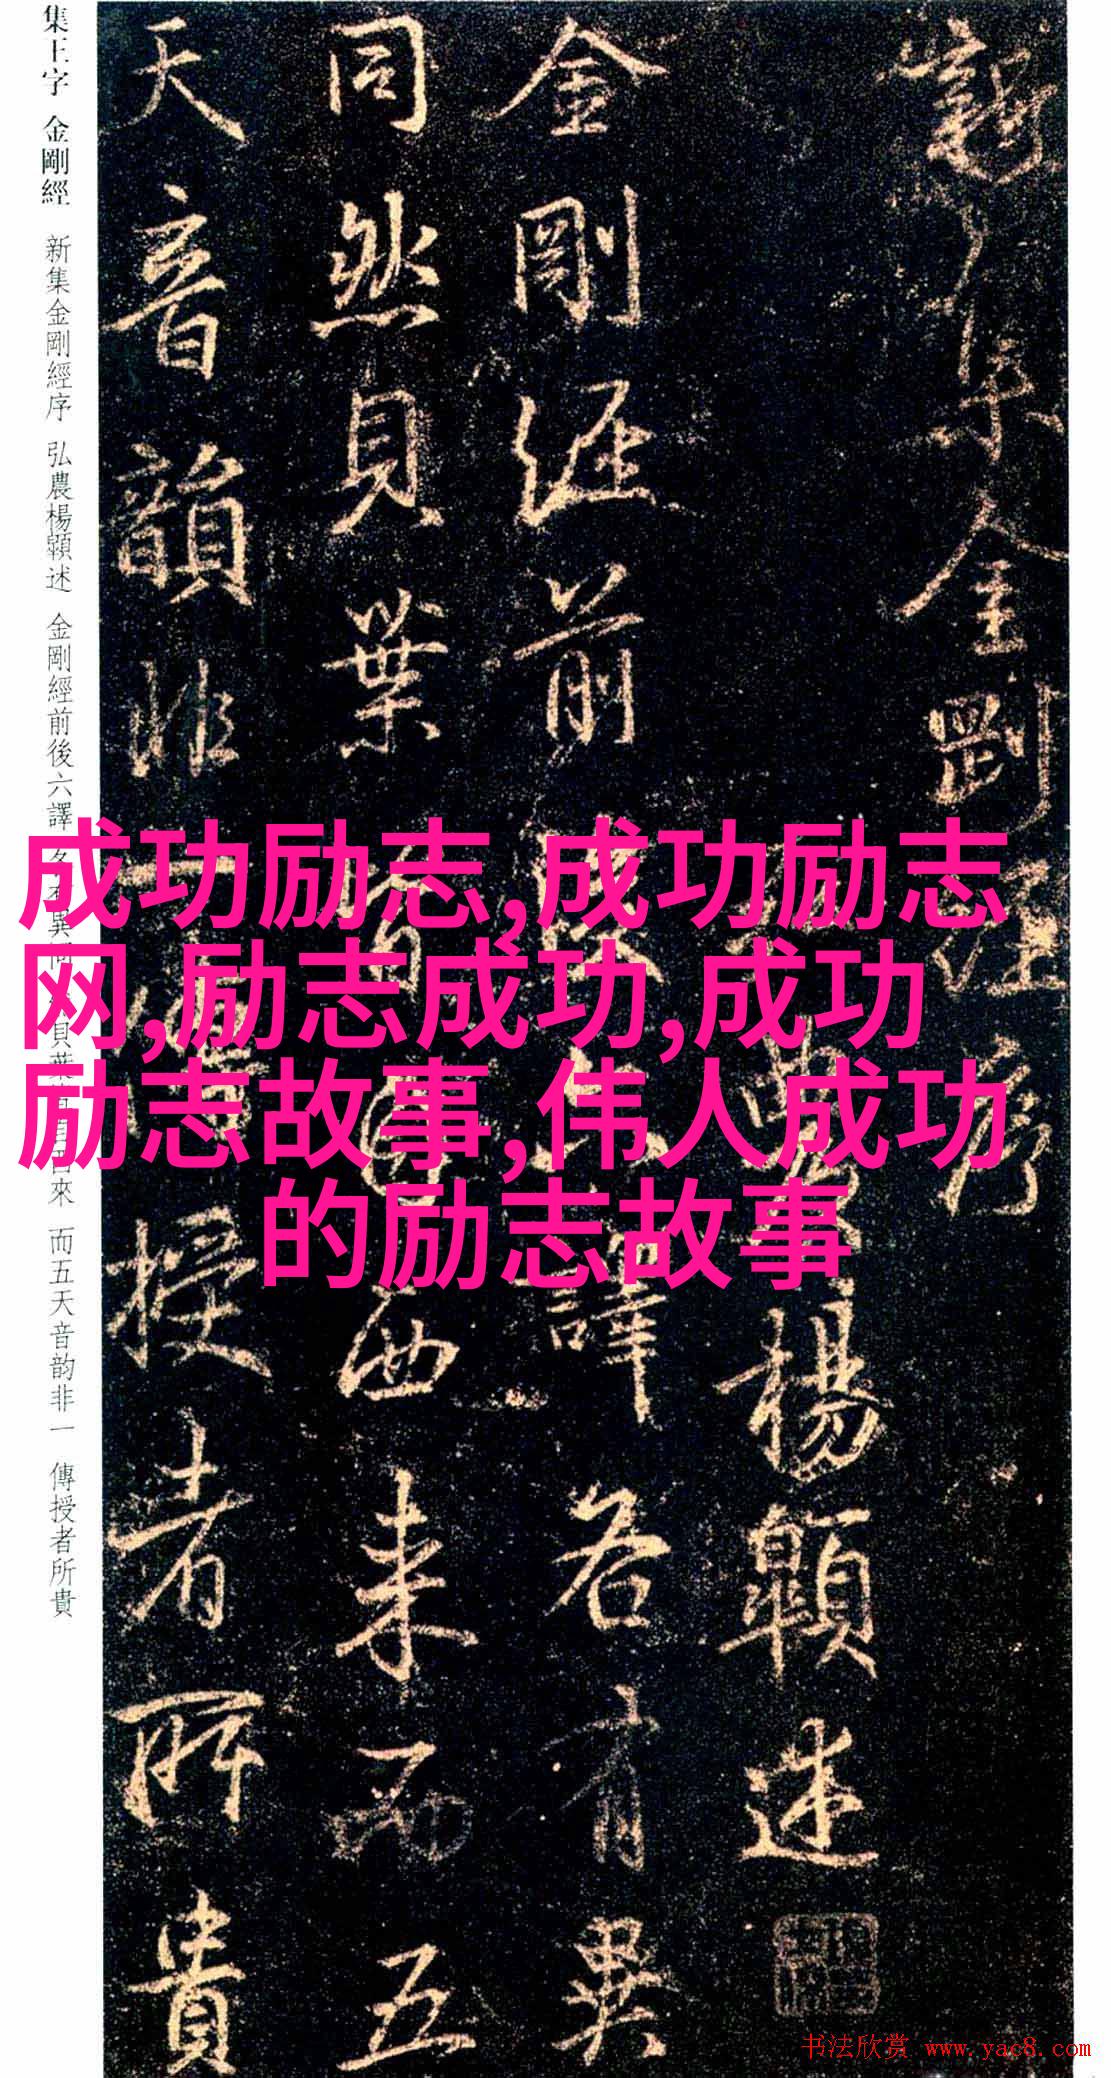 成功励志,成功励志
网,励志成功,成功
励志故事,伟人成功
的励志故事
新集金剛經序
楊顒述
金剛經前譯各有異
同然貝葉西来而五
天音韻非授者所貴
集王字 金剛經 新集金剛經序 弘農楊顒述 金剛經前後六譯異貝來 而五天音韵非一 傳授者所貴
书法欣赏 www.yac8.com